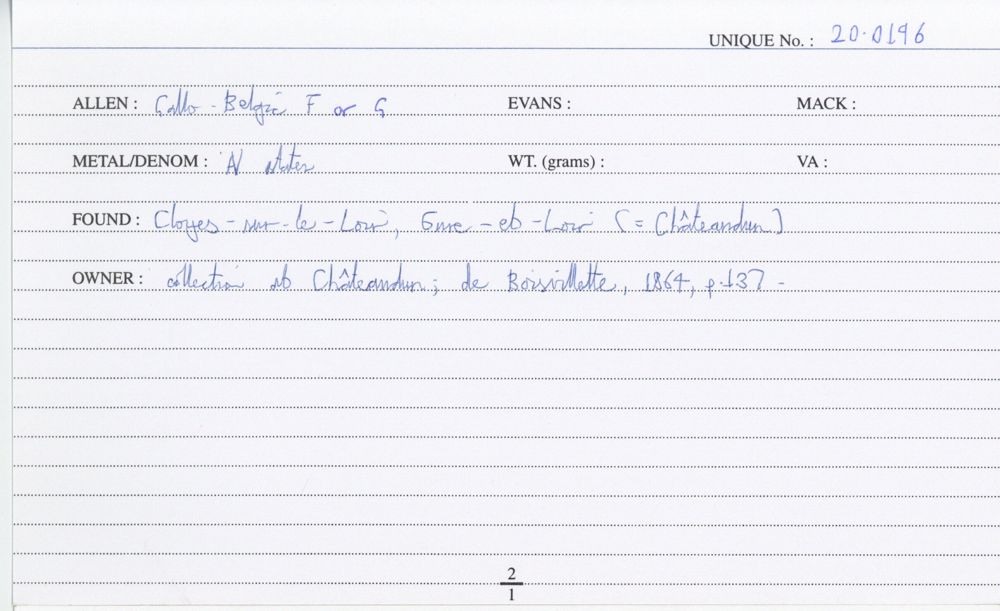 UNIQUE No. : 20·0196
ALLEN : Gallo-Belgic F or G EVANS : MACK :
METAL/DENOM : AV stater WT. (grams) : VA :
FOUND : Cloyes-sur-le-Loir, Eure-et-Loir (= Châteaudun)
OWNER : collection at Châteaudun; de Boisvillette, 1864, p.137 -
2
1